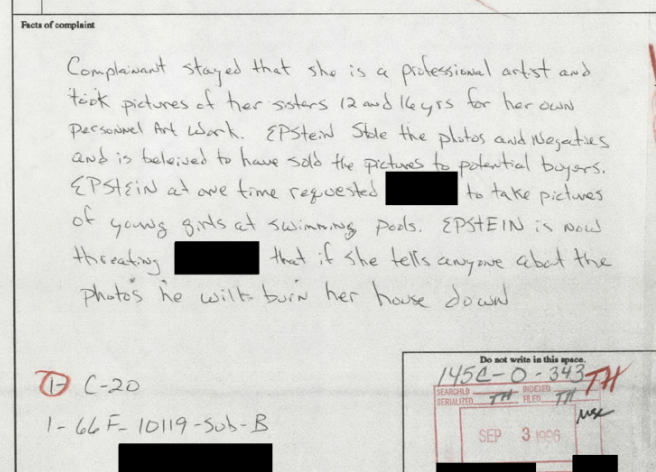 Facts of complaint
Complainant stayed that she is a professional artist and
took pictures of her sisters 12 and 16 yrs for her own
personnel Art work. EPStein Stole the photos and Negatives
and is beleived to have sold the pictures to potential buyers.
EPSTEIN at one time requested to take pictures
of young girls at swimming pools. EPSTEIN is now
threating that if she tells anyone about the
photo's he will burn her house down
Do not write in this space.
145C-0-343 TH
SEARCHED INDEXED
SERIALIZED TH FILED TH
SEP 3 1996
1- C-20
1-66F-10119-Sub-B